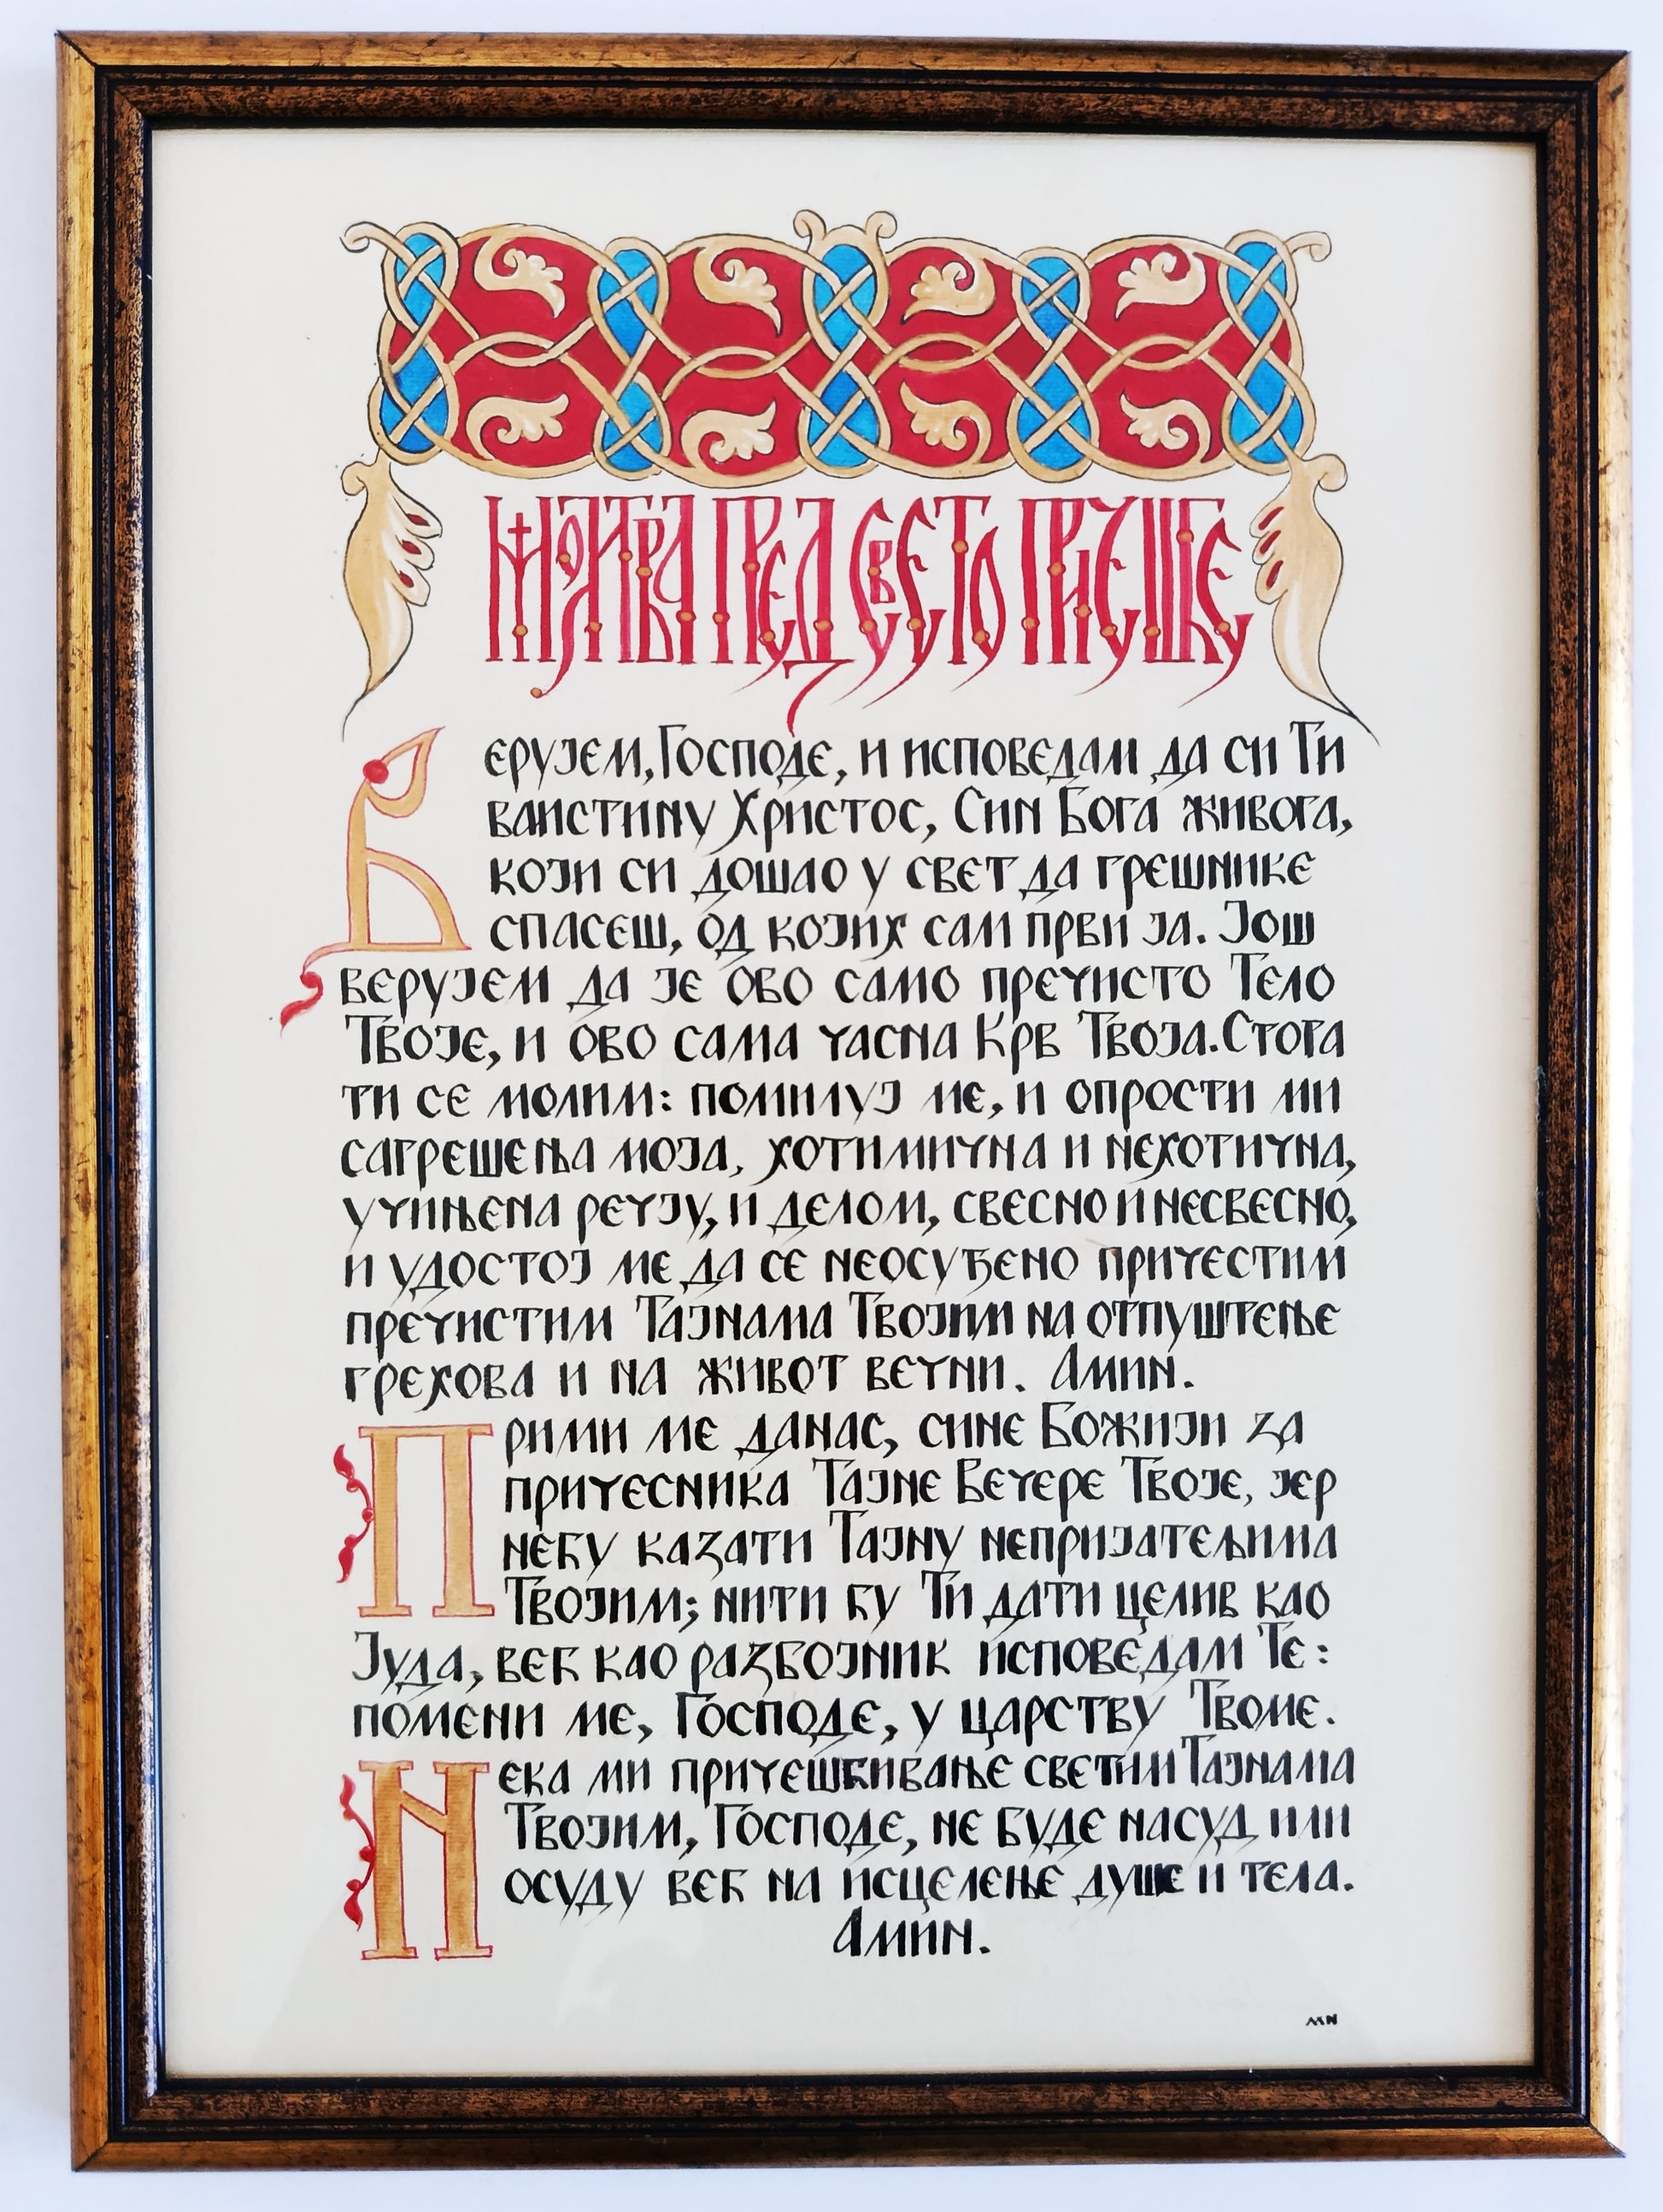 МОЛИТВА ПРЕД СВЕТО ПРИЧЕШЋЕ
Верујем, Господе, и исповедам да си Ти
ваистину Христос, Син Бога живога,
који си дошао у свет да грешнике
спасеш, од којих сам први ја. Још
верујем да је ово само пречисто Тело
Твоје, и ово сама часна Крв Твоја. Стога
ти се молим: помилуј ме, и опрости ми
сагрешења моја, хотимична и нехотична,
учињена речју, и делом, свесно и несвесно,
и удостој ме да се неосуђено причестим
пречистим Тајнама Твојим на отпуштење
грехова и на живот вечни. Амин.
Прими ме данас, сине Божији за
причесника Тајне Вечере Твоје, јер
нећу казати Тајну непријатељима
Твојим; нити ћу Ти дати целив као
Јуда, већ као разбојник исповедам Те:
помени ме, Господе, у царству Твоме.
Нека ми причешћивање светим Тајнама
Твојим, Господе, не буде на суд или
осуду већ на исцелење душе и тела.
Амин.
MN